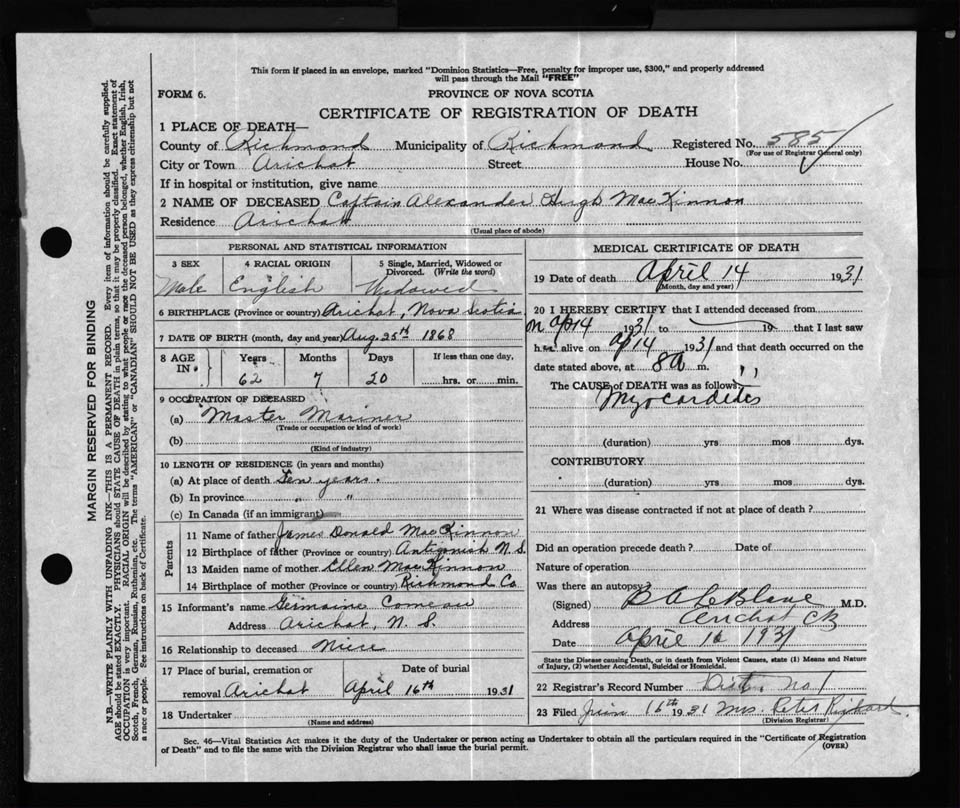 This form if placed in an envelope, marked "Dominion Statistics—Free, penalty for improper use, $300," and properly addressed
will pass through the Mail "FREE"
FORM 6.
PROVINCE OF NOVA SCOTIA
CERTIFICATE OF REGISTRATION OF DEATH
1 PLACE OF DEATH—
County of Richmond Municipality of Richmond Registered No. 585
(For use of Registrar General only)
City or Town Arichat Street House No.
If in hospital or institution, give name
2 NAME OF DECEASED Captain Alexander Hugh MacKinnon
Residence Arichat
(Usual place of abode)
PERSONAL AND STATISTICAL INFORMATION
3 SEX 4 RACIAL ORIGIN 5 Single, Married, Widowed or
Divorced. (Write the word)
Male English Widowed
6 BIRTHPLACE (Province or country) Arichat, Nova Scotia
7 DATE OF BIRTH (month, day and year) Aug 25th 1868
8 AGE IN Years Months Days If less than one day,
62 7 20 hrs. or min.
9 OCCUPATION OF DECEASED
(a) Master Mariner
(Trade or occupation or kind of work)
(b)
(Kind of industry)
10 LENGTH OF RESIDENCE (in years and months)
(a) At place of death Ten years.
(b) In province " "
(c) In Canada (if an immigrant)
Parents
11 Name of father James Donald MacKinnon
12 Birthplace of father (Province or country) Antigonish N.S.
13 Maiden name of mother Ellen MacKinnon
14 Birthplace of mother (Province or country) Richmond Co
15 Informant's name Germaine Comeau
Address Arichat, N. S.
16 Relationship to deceased Niece
17 Place of burial, cremation or Date of burial
removal Arichat April 16th 1931
18 Undertaker
(Name and address)
MEDICAL CERTIFICATE OF DEATH
19 Date of death April 14 1931
(Month, day and year)
20 I HEREBY CERTIFY that I attended deceased from
on Ap 14 1931 to 19 that I last saw
h alive on Ap 14 1931 and that death occurred on the
date stated above, at 8 a m.
The CAUSE of DEATH was as follows:
Myocarditis
(duration) yrs mos dys.
CONTRIBUTORY
(duration) yrs. mos. dys.
21 Where was disease contracted if not at place of death?
Did an operation precede death? Date of
Nature of operation
Was there an autopsy?
(Signed) B A LeBlanc M.D.
Address Arichat CB
Date April 16 1931
State the Disease causing Death, or in death from Violent Causes, state (1) Means and Nature
of Injury, (2) whether Accidental, Suicidal or Homicidal.
22 Registrar's Record Number Dist. No 1
23 Filed 16th 1931 Mrs. Peter
(Division Registrar)
Sec. 46—Vital Statistics Act makes it the duty of the Undertaker or person acting as Undertaker to obtain all the particulars required in the "Certificate of Registration
of Death" and to file the same with the Division Registrar who shall issue the burial permit.
(OVER)
MARGIN RESERVED FOR BINDING
N.B.—WRITE PLAINLY WITH UNFADING INK—THIS IS A PERMANENT RECORD. Every item of information should be carefully supplied.
AGE should be stated EXACTLY. PHYSICIANS should STATE CAUSE OF DEATH in plain terms, so that it may be properly classified. Exact statement of
OCCUPATION is very important. RACIAL ORIGIN will be described by stating to what people or race the deceased person belonged, whether English, Irish,
Scotch, French, German, Russian, Ruthenian, etc. The terms "AMERICAN" or "CANADIAN" SHOULD NOT BE USED as they express citizenship but not
a race or people. See instructions on back of Certificate.